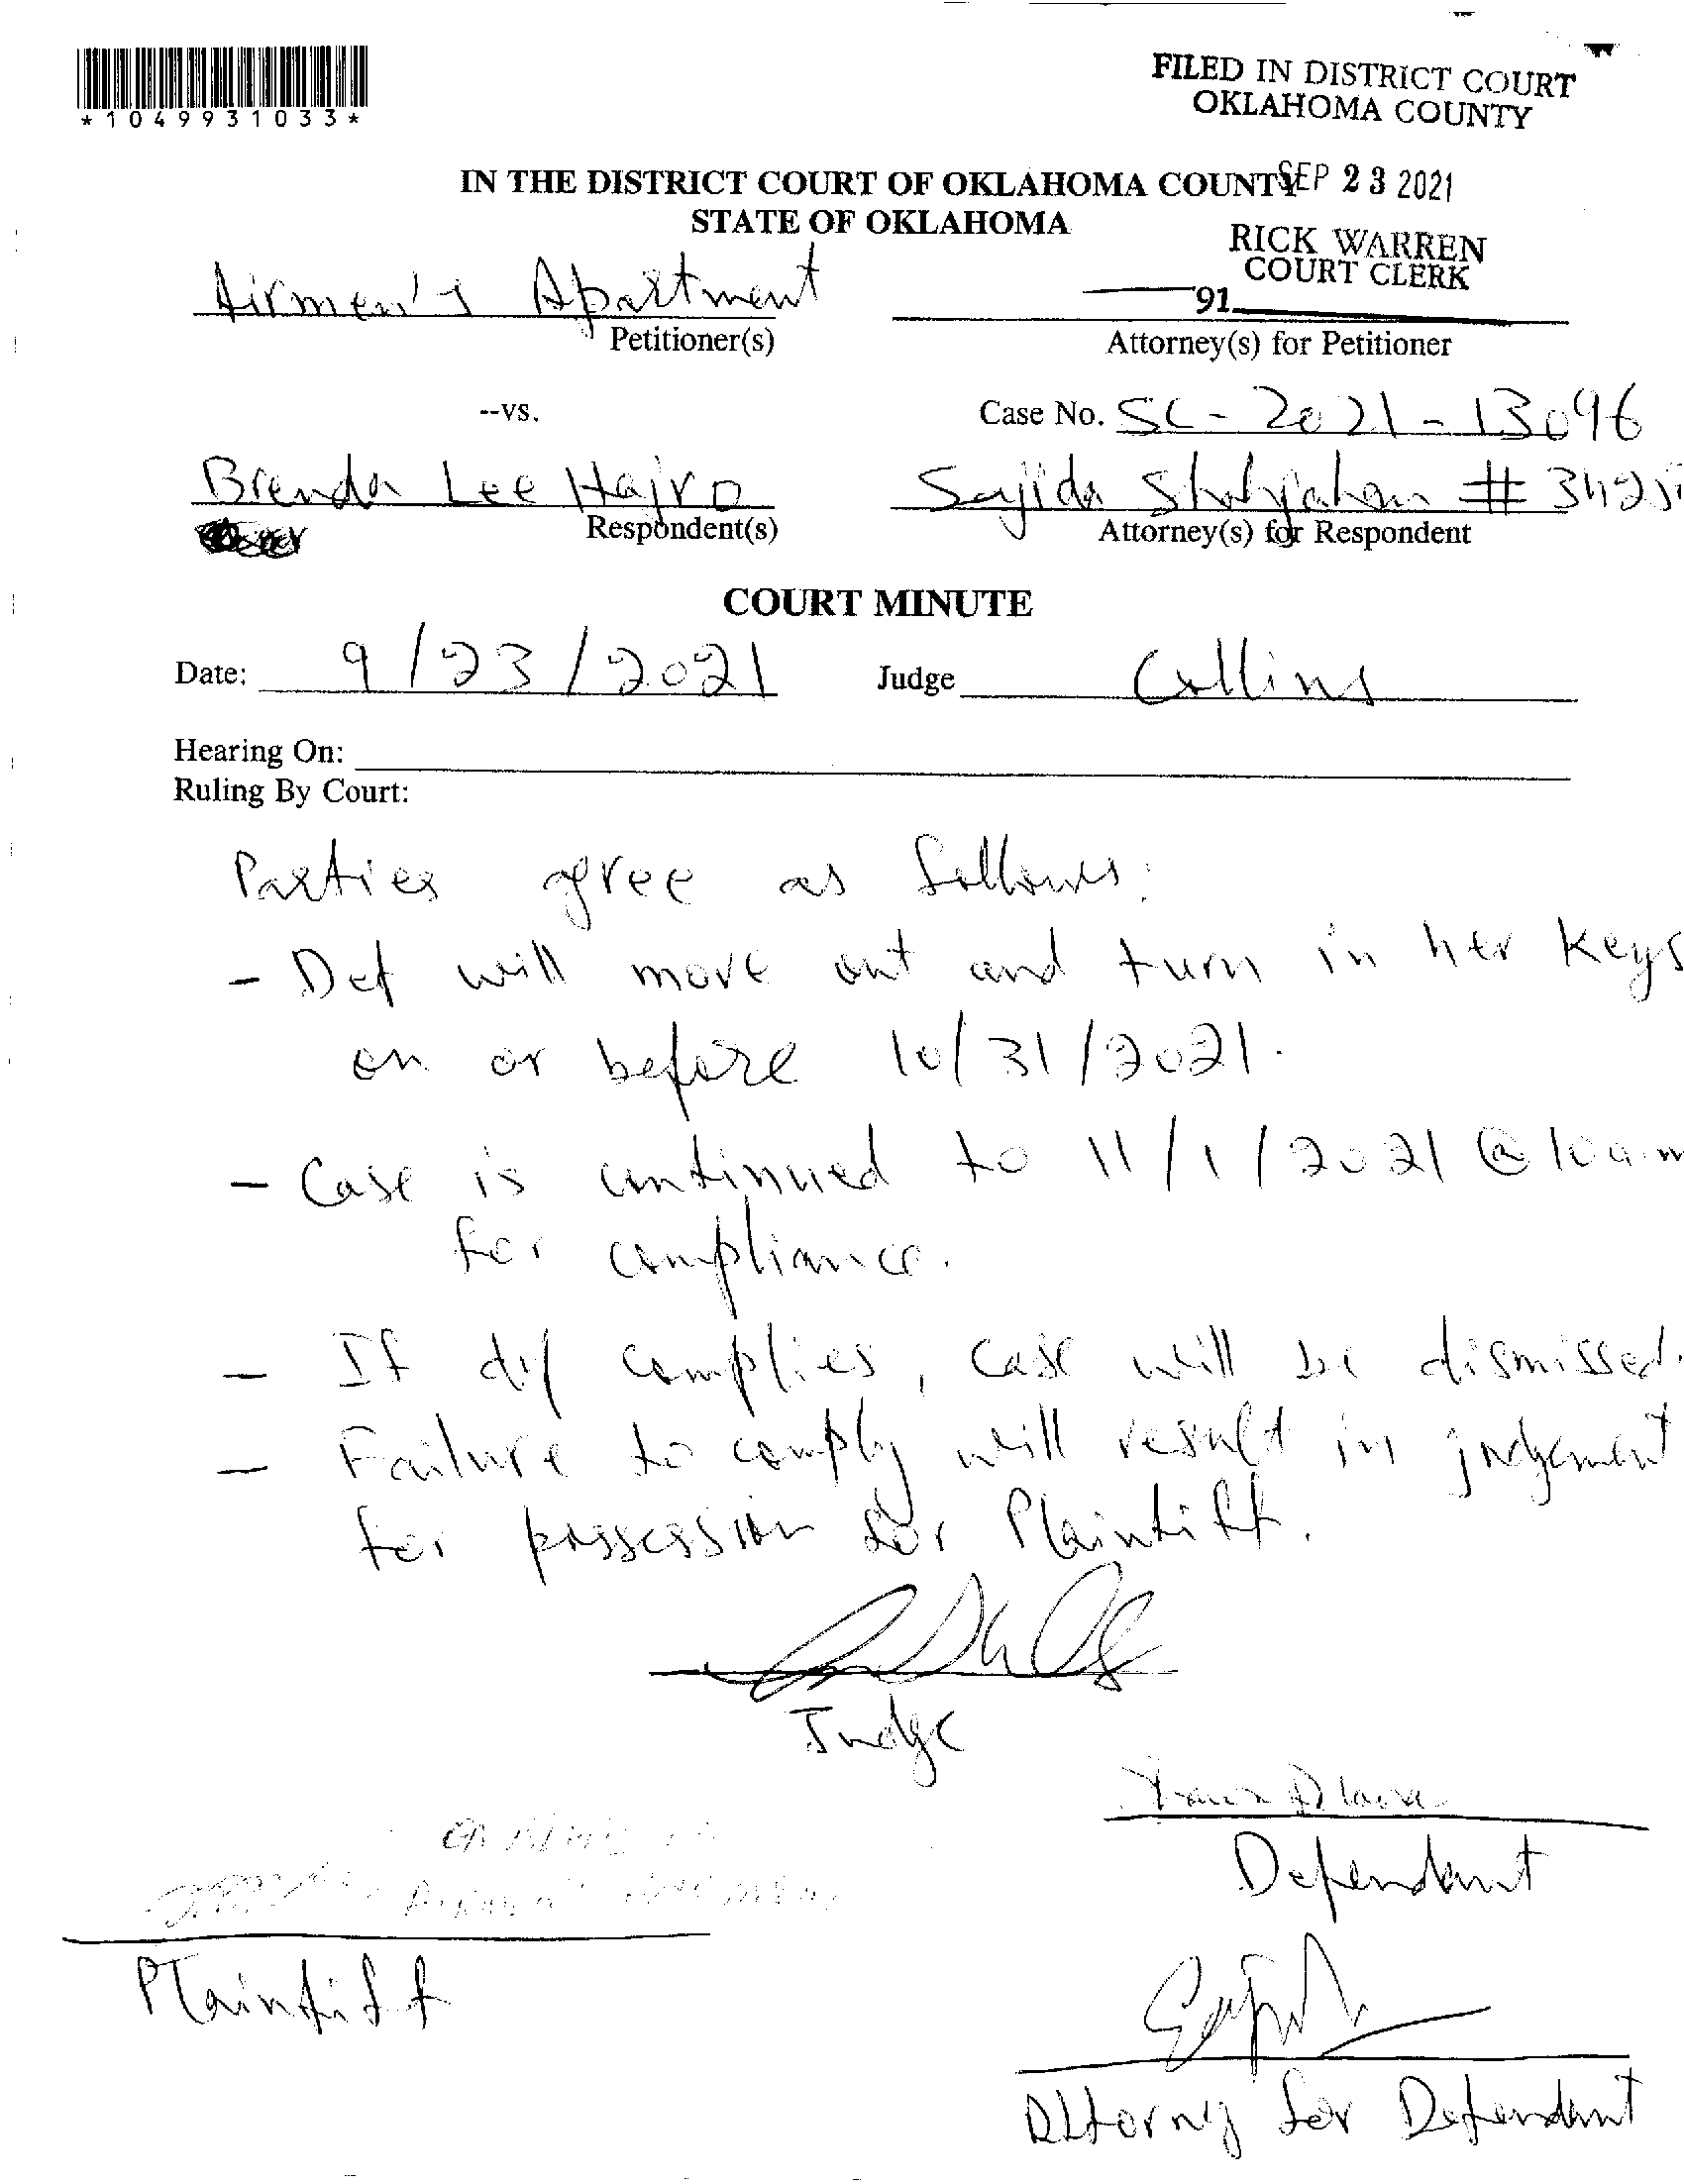 *1049931033*
FILED IN DISTRICT COURT
OKLAHOMA COUNTY
IN THE DISTRICT COURT OF OKLAHOMA COUNTY
SEP 23 2021
STATE OF OKLAHOMA
RICK WARREN
COURT CLERK
91
Airmen's Apartment
Petitioner(s)
Attorney(s) for Petitioner
--vs.
Case No. SC-2021-13096
Brenda Lee Hajro
Respondent(s)
Sajida #
Attorney(s) for Respondent
COURT MINUTE
Date: 9/23/2021 Judge Collins
Hearing On:
Ruling By Court:
Parties agree as follows:
- Def will move out and turn in her keys
on or before 10/31/2021.
- Case is continued to 11/1/2021 @ 10 a.m
for compliance.
- If def complies, case will be dismissed.
- Failure to comply will result in judgement
for possession for Plaintiff.
Judge
Defendant
Plaintiff
Attorny for Defendant